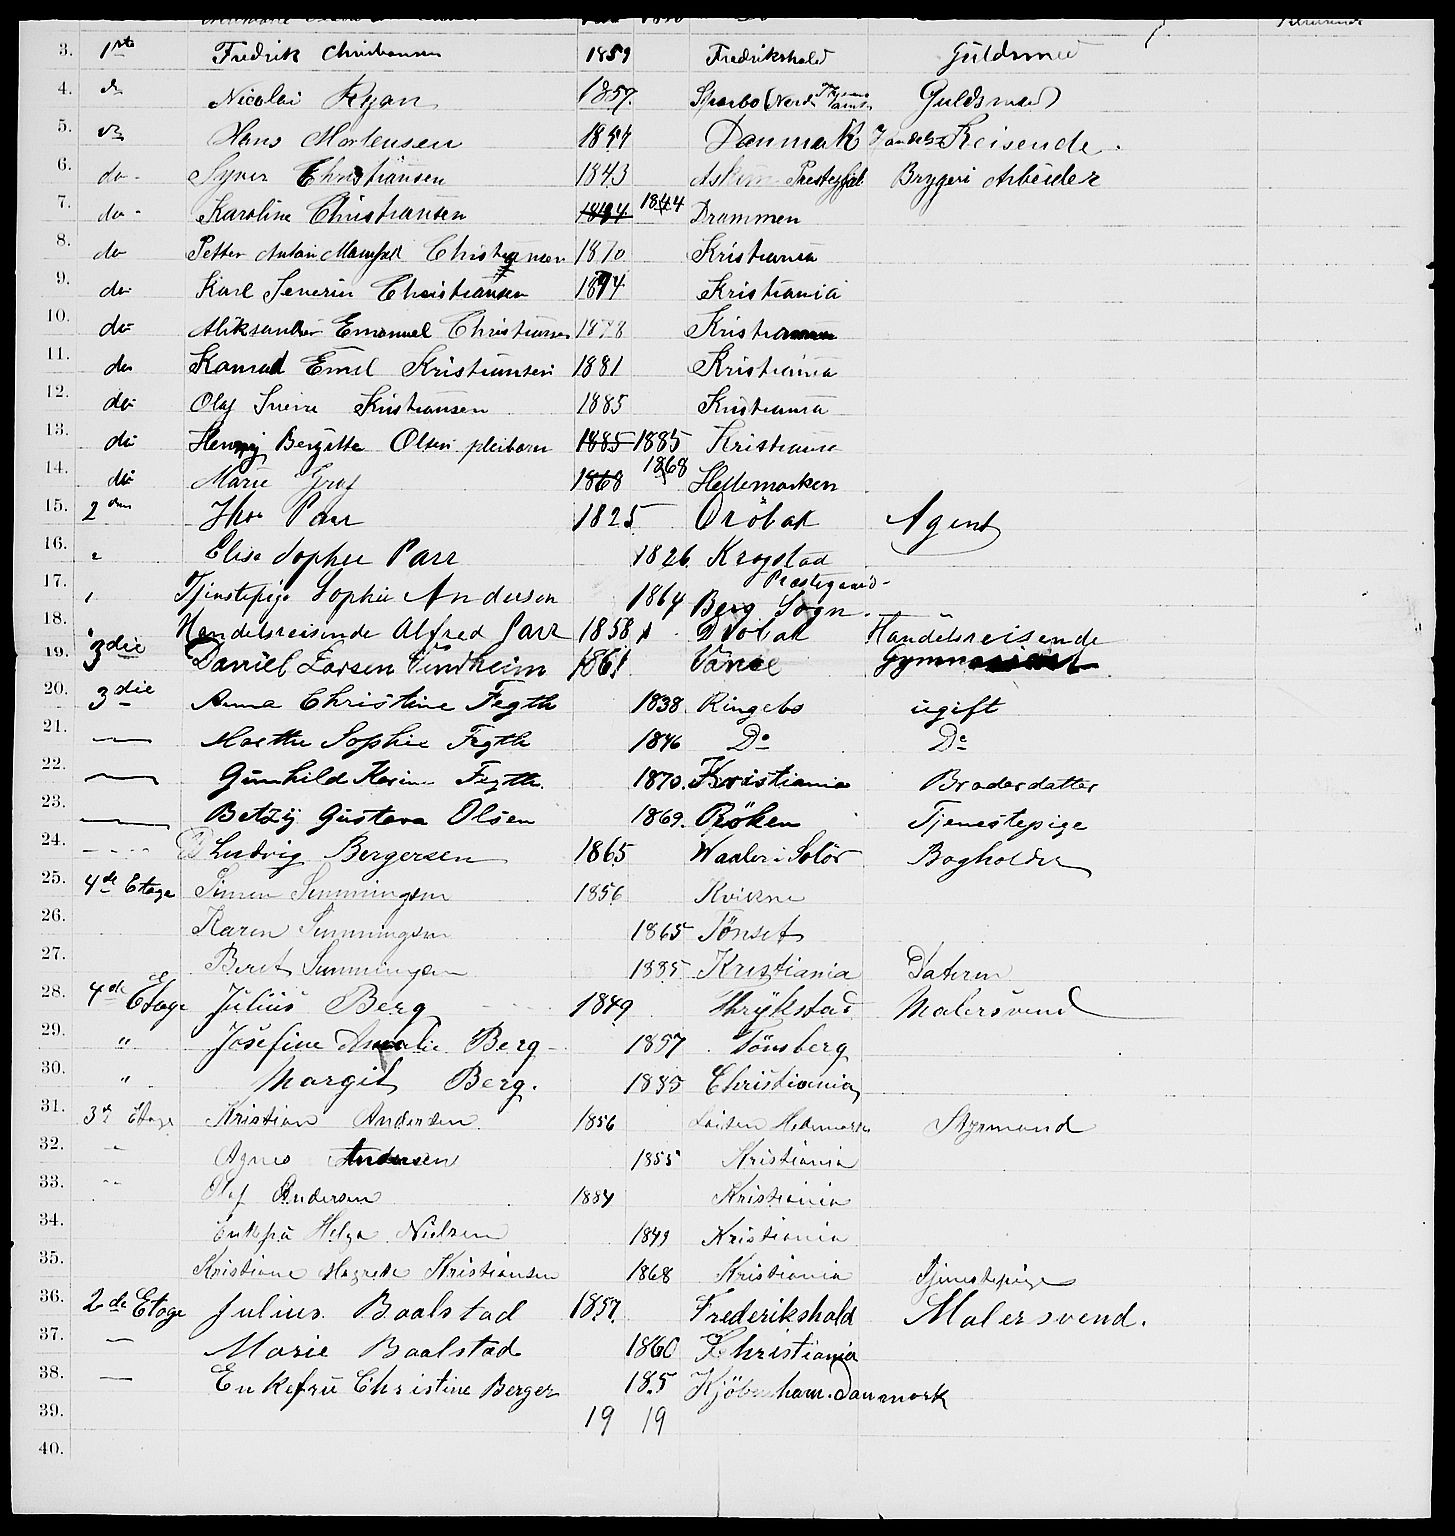 3. 1ste Fredrik Christiansen 1859 Fredrikshald Guldsmed
4. do Nicolai Ryan 1857. Sparbo (Nord Guldsmed
5. do Hans Mortensen 1854 Danmark Handels Reisende.
6. do - Syver Christiansen 1843 Askim Prestegjeld Bryggeri Arbeider
7. do - Karoline Christiansen 1844 Drammen
8. do Petter Anton Christiansen 1870 Kristiania
9. do Karl Severin Christiansen 1874 Kristiania
10. do Aliksander Emanuel Christiansen 1878 Kristiania
11. do Konrad Emil Kristiansen 1881 Kristiania
12. do Olaf Sverre Kristiansen 1885 Kristiania
13. do Henny Bergitte Olsen pleibarn 1885 1885 Kristiania
14. do Marie 1868 1868 Hellemarken
15. 2den Parr 1825 Dröbak Agent
16. " Elise Sophie Parr 1826 Krogstad Præstegaard-
17. " Tjenstepige Sophie Andersen 1864 Berg Sogn.
18. 3die Handelsreisende Alfred Parr 1858 Dröbak Handelsreisende
19. Daniel Larsen Vindheim 1861 Vanse
20. 3die Anna Christine Fegth 1838 Ringebo ugift
21. — Marthe Sophie Fegth 1846 Do Do
22. — Gunhild Karine Fegth. 1870. Kristiania Broderdatter
23. — Betzÿ Gustava Olsen 1869. Röken Tjenestepige
24. - - - - Ludvig Bergersen 1865 Waaler i Solör Bogholder
25. 4de Etage Simen Simmingsen 1856 Kvikne
26. Karen Simmingsen 1865 Tönset
27. Beret Simmingsen 1885 Kristiania Dateren
28. 4de Etage Julius Berg 1849 Thrykstad Malersvend
29. " Josefine Amalie Berg 1857 Tönsberg
30. " Margit Berg. 1885 Christiania
31. 3de Etage Kristian Andersen 1856 Löiten Hedemarken Styrmand
32. " Agnes Andersen 1855 Kristiania
33. " Olaf Andersen 1884 Kristiania
34. Enkefru Helga Nielsen 1849 Kristiania
35. Kristiane Magrethe Kristiansen 1868 Kristiania Tjenestepige
36. 2de Etage Julius Baalstad 1857. Frederikshald Malersvend.
37. — Marie Baalstad 1860 Khristiania
38. — Enkefru Christine Berger 185 Kjöbenham. Danmark
39. 19 19
40.